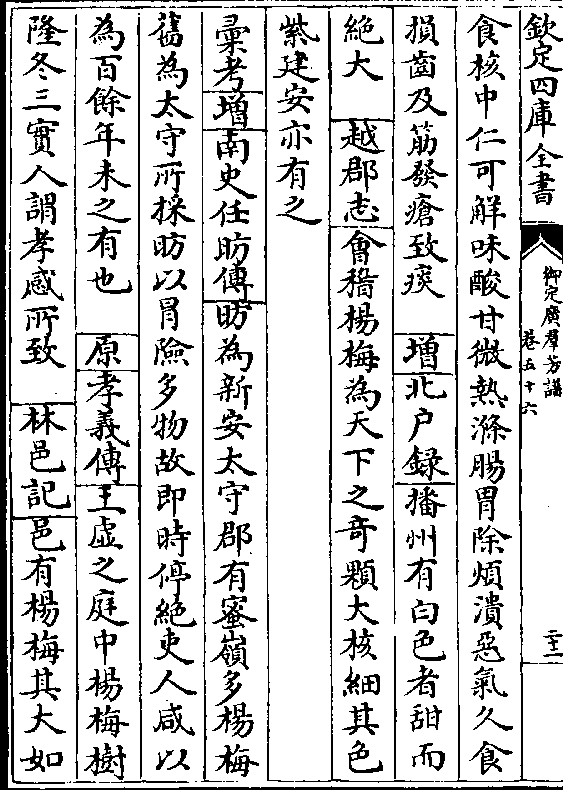 欽定四庫全書
御定廣羣芳譜
卷五十六
二十二
食核中仁可解味酸甘微熱滌腸胃除煩潰惡氣久食
損齒及筋發瘡致痰 增北户録播州有白色者甜而
絶大 越郡志會稽楊梅為天下之竒顆大核細其色
紫建安亦有之
彚考增南史任昉傳昉為新安太守郡有蜜嶺多楊梅
舊為太守所採昉以冐險多物故即時停絶吏人咸以
為百餘年未之有也 原孝義傳王虚之庭中楊梅樹
隆冬三實人謂孝感所致 林邑記邑有楊梅其大如